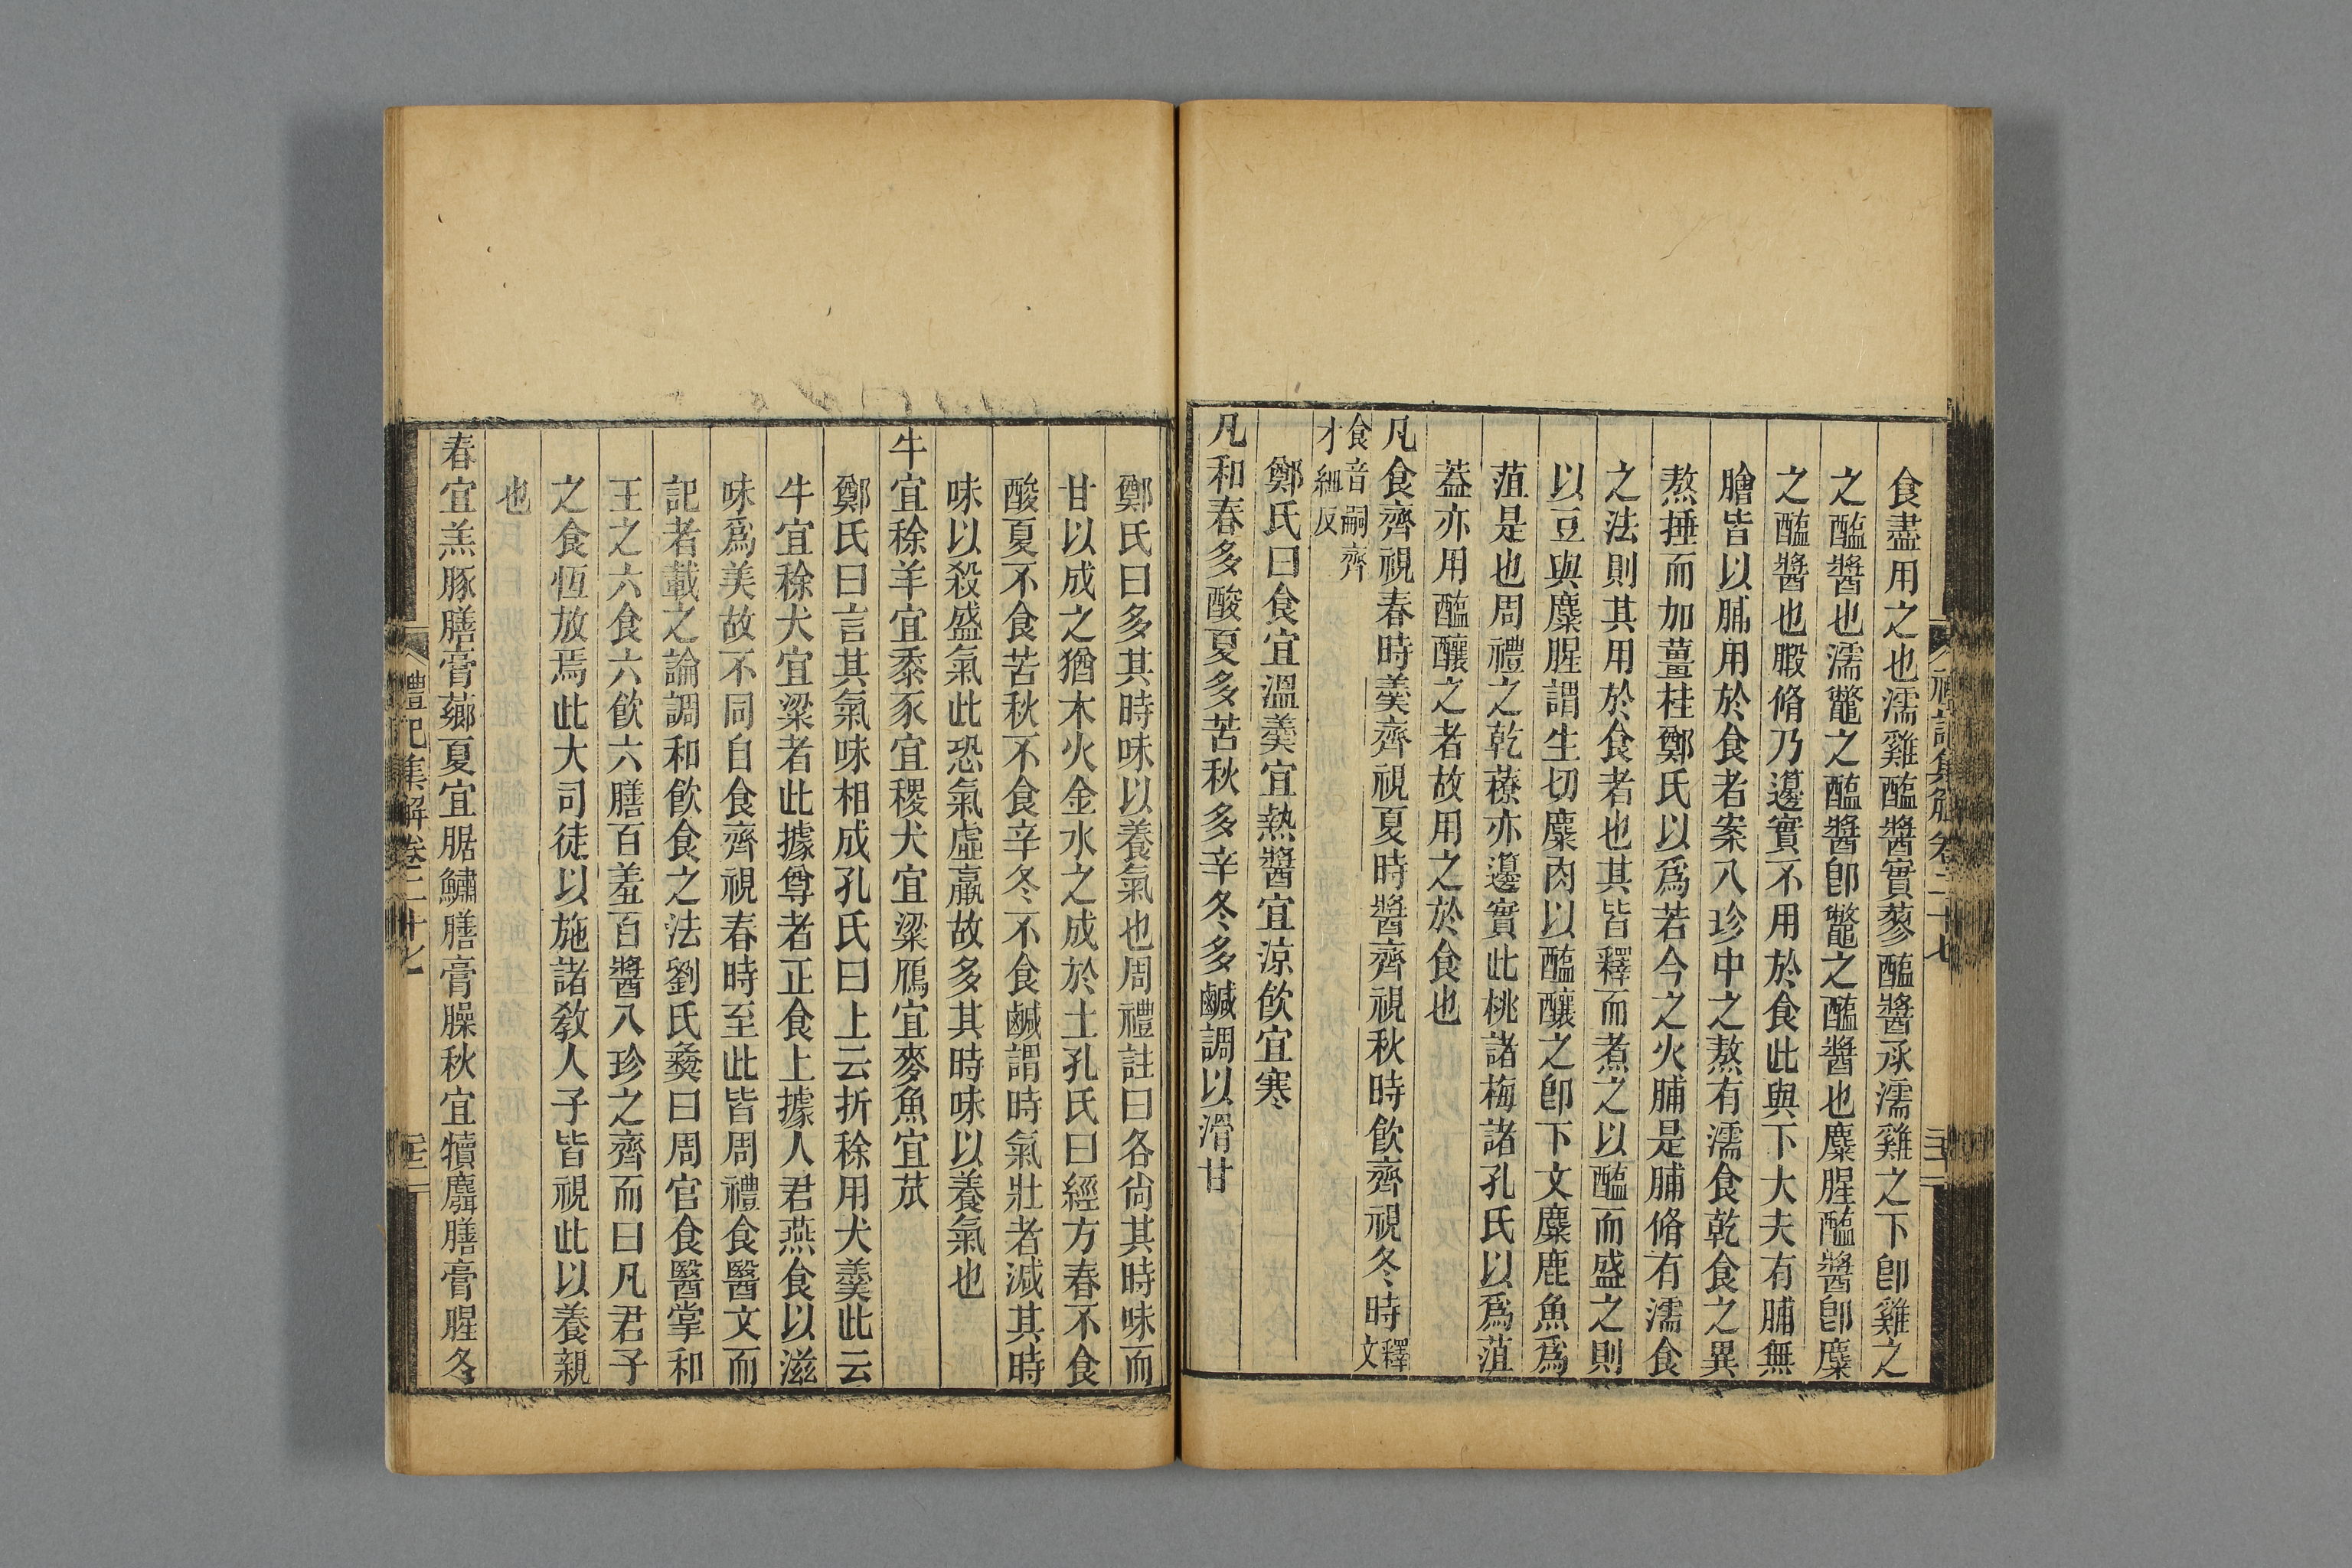 食盡用之也濡雞醢醬實蓼醢醬承濡雞之下卽雞之
之醢醬也濡鼈之醢醬卽鼈之醢醬也麋腥醢醬卽麋
之醢醬也腶脩乃籩實不用於食此與下大夫有脯無
膾皆以脯用於食者案八珍中之熬有濡食乾食之異
熬捶而加薑桂鄭氏以爲若今之火脯是脯脩有濡食
之法則其用於食者也其皆釋而煮之以醢而盛之則
以豆與麋腥謂生切麋肉以醢釀之卽下文麋鹿魚爲
菹是也周禮之乾䕩亦籩實此桃諸梅諸孔氏以爲菹
蓋亦用醢釀之者故用之於食也
凡食齊視春時羹齊視夏時醬齊視秋時飮齊視冬時釋文
食音嗣齊
才細反
鄭氏曰食宜溫羹宜熱醬宜涼飮宜寒
凡和春多酸夏多苦秋多辛冬多鹹調以滑甘
鄭氏曰多其時味以養氣也周禮註曰各尙其時味而
甘以成之猶木火金水之成於土孔氏曰經方春不食
酸夏不食苦秋不食辛冬不食鹹謂時氣壯者減其時
味以殺盛氣此恐氣虛羸故多其時味以養氣也
牛宜稌羊宜黍豕宜稷犬宜粱鴈宜麥魚宜苽
鄭氏曰言其氣味相成孔氏曰上云折稌用犬羹此云
牛宜稌犬宜粱者此據尊者正食上據人君燕食以滋
味爲美故不同自食齊視春時至此皆周禮食醫文而
記者載之論調和飮食之法劉氏彝曰周官食醫掌和
王之六食六飮六膳百羞百醬八珍之齊而曰凡君子
之食恆放焉此大司徒以施諸敎人子皆視此以養親
也
春宜羔豚膳膏薌夏宜腒鱐膳膏臊秋宜犢麛膳膏腥冬
禮記集解卷二十七